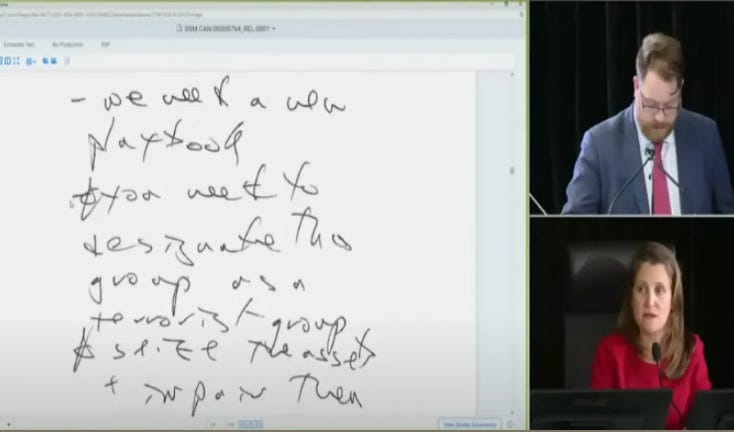 SSM.CAN.00008764_REL.0001
Extracted Text Re-Production PDF
- we need a new
playbook
$ you need to
designate this
group as a
terrorist group
$ seize the assets
+ impair them
View Similar Documents